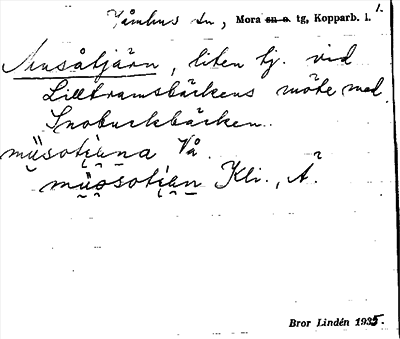 1.
Våmhus sn, Mora sn o. tg, Kopparb. l.
Musåtjärn, liten tj. vid
Lilltransbäckens möte med
Snoburkbäcken.
mü̬soti̯äna Vå.
mü̬o̬soti̯än Kli., Å?
Bror Lindén 1935.